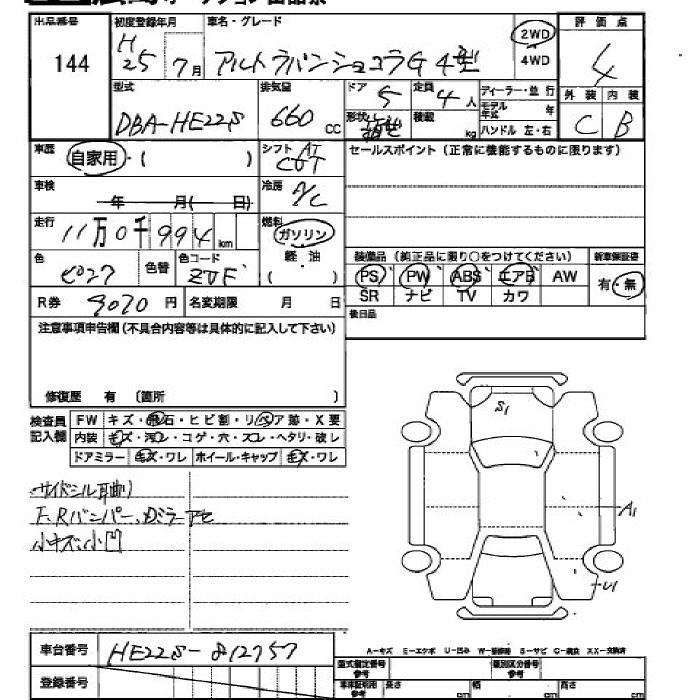 出品番号 初度登録年月 車名・グレード 評価点
144 H25 7月 アルトラパンショコラG 4型 2WD 4WD 4
型式 排気量 ドア 5 定員 4人 ディーラー・並行 外装 内装
DBA-HE22S 660 cc 形状 積載 kg モデル年式 年 ハンドル 左・右 C B
車歴 自家用・( ) シフト AT セールスポイント(正常に機能するものに限ります)
車検 年 月( 日) 冷房 A/C
走行 11万0千994km 燃料 ガソリン
色 色替 色コード ZVF 軽油 ( ) 装備品(純正品に限り○をつけてください) 新車保証書
PS PW ABS エアB AW 有・無
R券 9070円 名変期限 月 日 SR ナビ TV カワ
注意事項申告欄(不具合内容等は具体的に記入して下さい) 後日品
修復歴 有 (箇所 )
検査員記入欄 FW キズ・飛石・ヒビ割・リペア跡・X要
内装 キズ・汚レ・コゲ・穴・スレ・ヘタリ・破レ
ドアミラー キズ・ワレ ホイール・キャップ キズ・ワレ
S1
サイドシル耳曲り
F、Rバンパー、Dミラーアセ A1
小キズ、小凹
U1
車台番号 HE22S-812757 A-キズ E-エクボ U-凹み S-サビ C-腐食 XX-交換済
登録番号 型式指定番号 参考 類別区分番号 参考
長さ cm 幅 cm 高さ cm